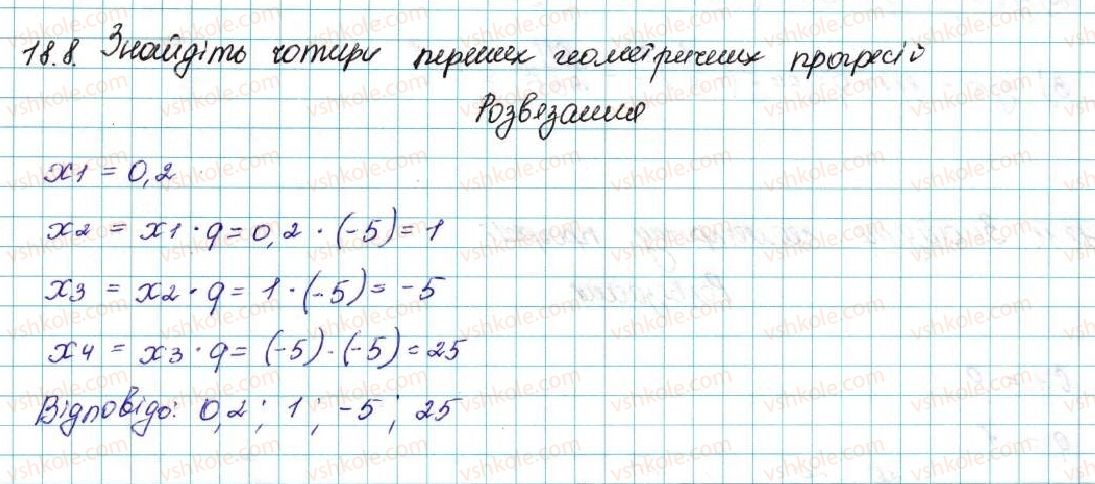 18.8. Знайдіть чотири перших геометричних прогресій
Розвязання
x1 = 0,2
x2 = x1 · q = 0,2 · (-5) = 1
x3 = x2 · q = 1 · (-5) = -5
x4 = x3 · q = (-5) · (-5) = 25
Відповідь: 0,2 ; 1 ; -5 ; 25